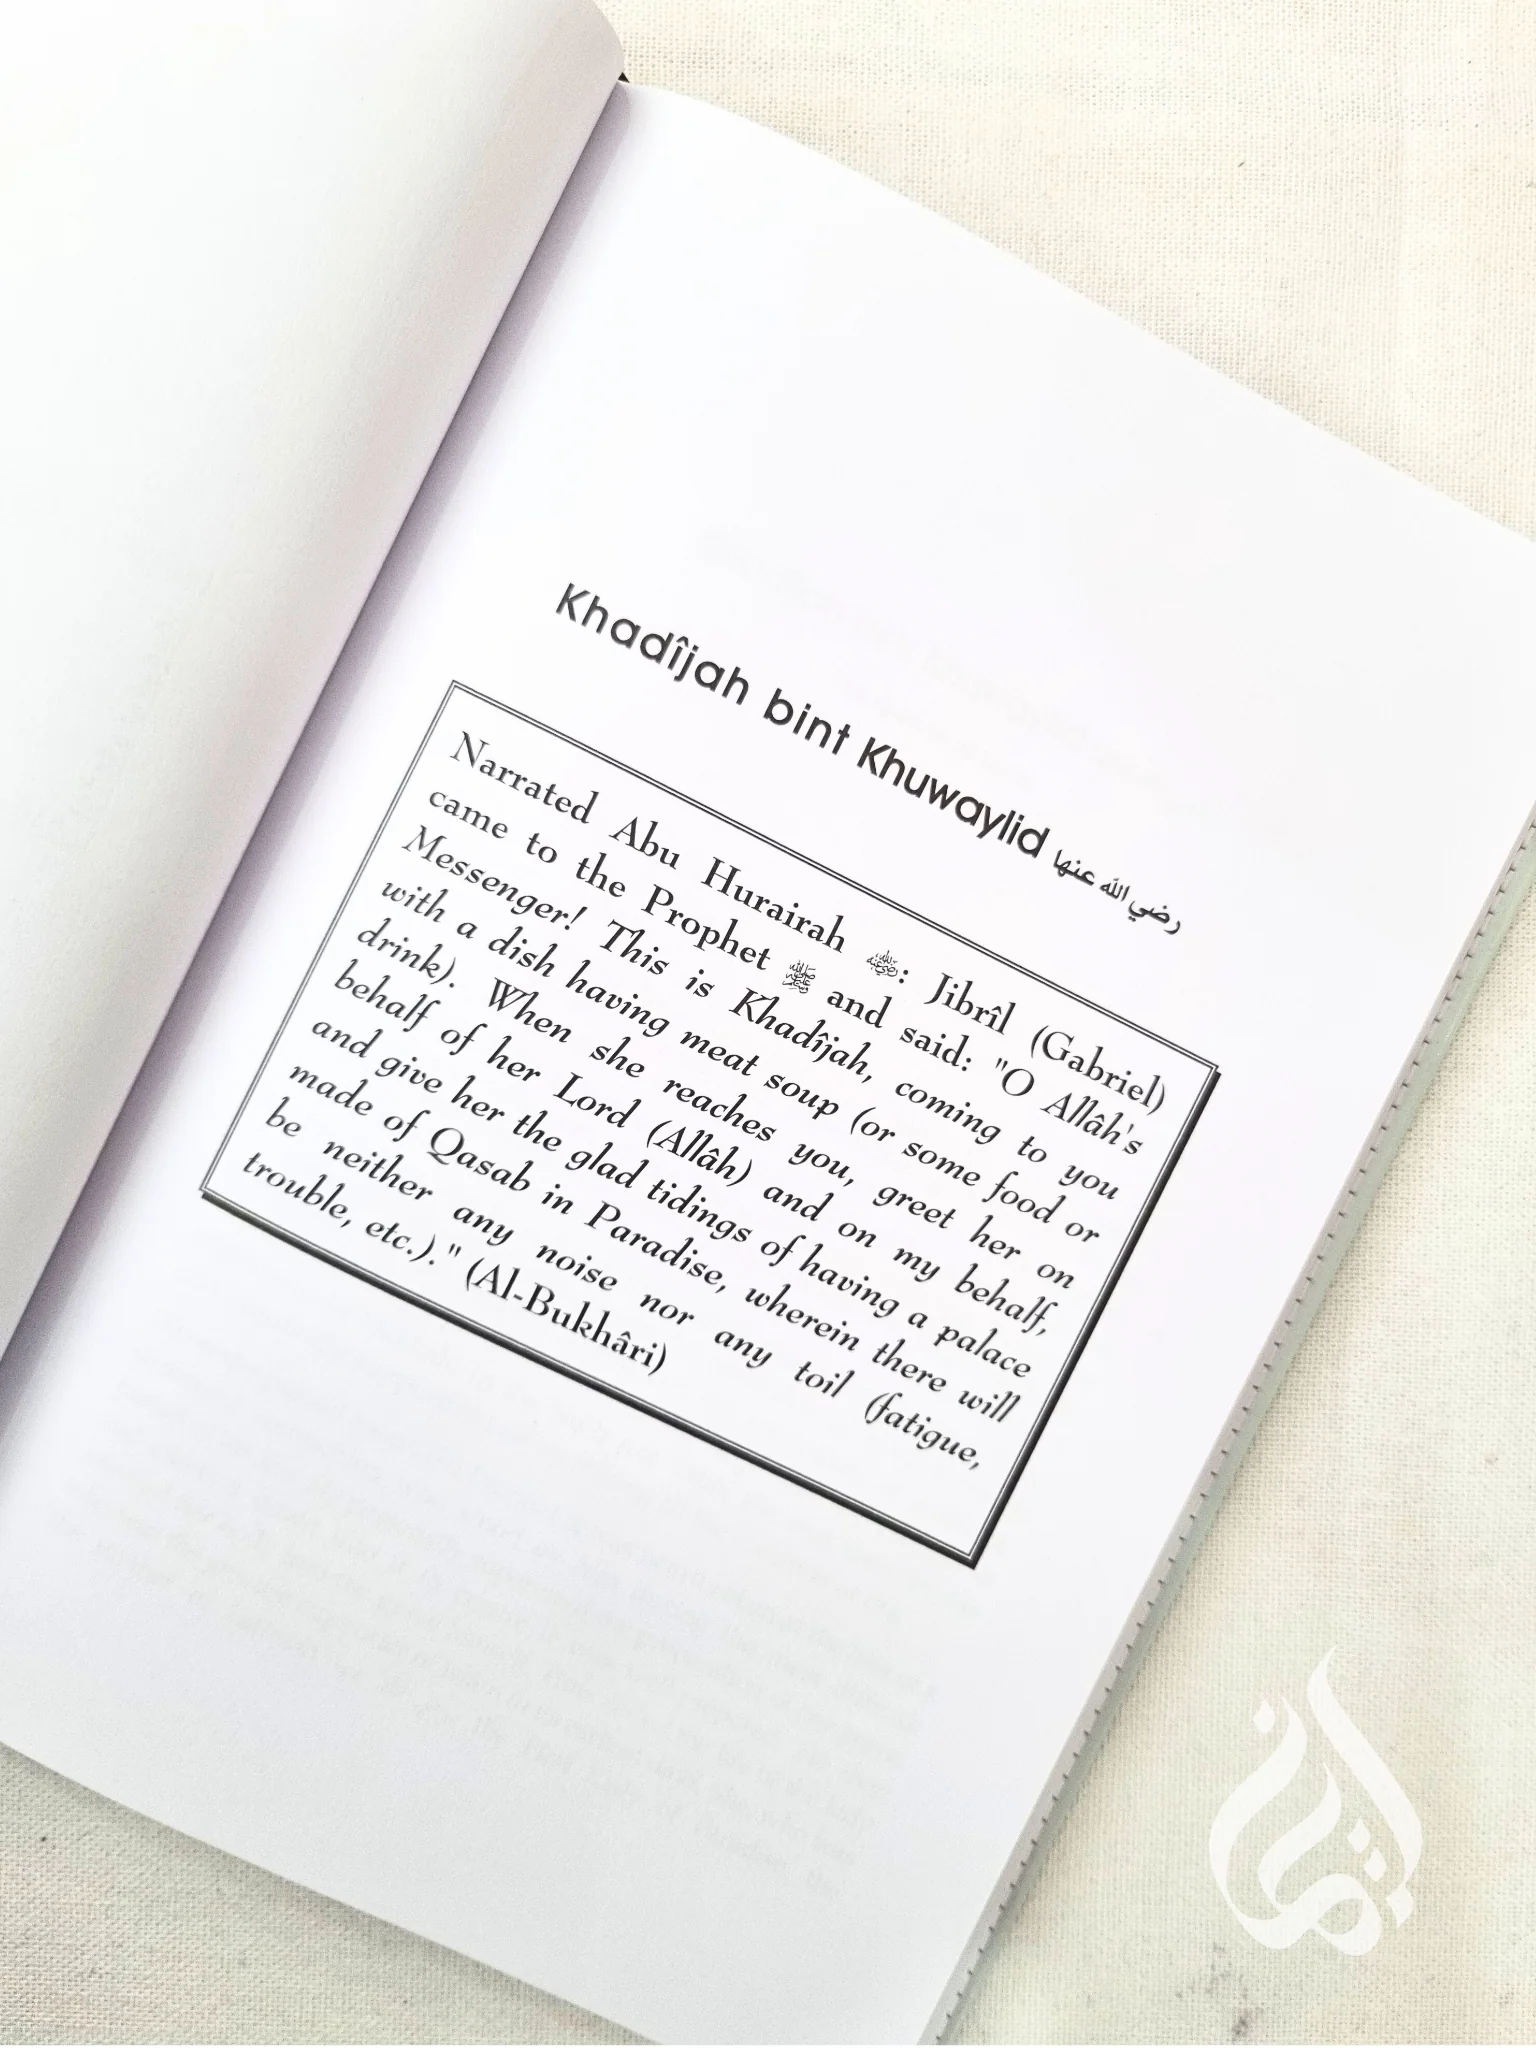 Khadîjah bint Khuwaylid رضي الله عنها
Narrated Abu Hurairah رضي الله عنه: Jibrîl (Gabriel)
came to the Prophet ﷺ and said: "O Allâh's
Messenger! This is Khadîjah, coming to you
with a dish having meat soup (or some food or
drink). When she reaches you, greet her on
behalf of her Lord (Allâh) and on my behalf,
and give her the glad tidings of having a palace
made of Qasab in Paradise, wherein there will
be neither any noise nor any toil (fatigue,
trouble, etc.)." (Al-Bukhâri)